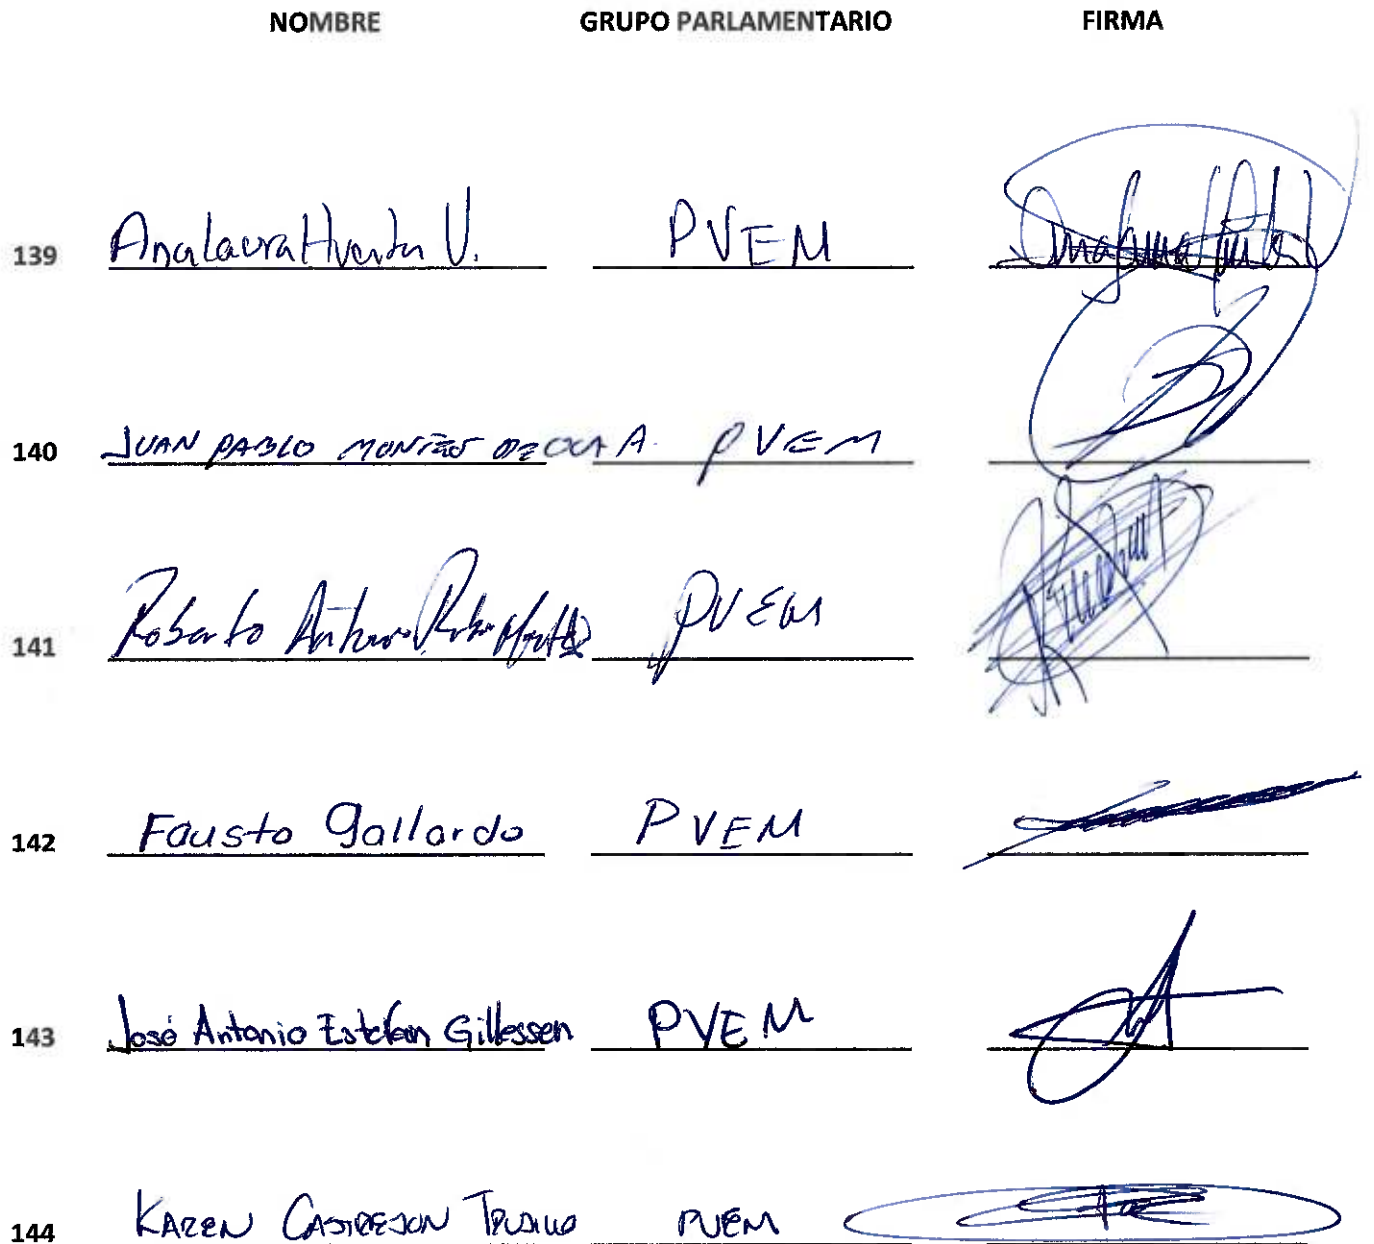 NOMBRE GRUPO PARLAMENTARIO FIRMA
139 Ana Laura Huerta V. PVEM
140 JUAN PABLO MONTES DE OCA A. PVEM
141 Roberto Antonio PVEM
142 Fausto Gallardo PVEM
143 José Antonio Estefan Gillessen PVEM
144 KAREN CASTREJON TRUJILLO PVEM